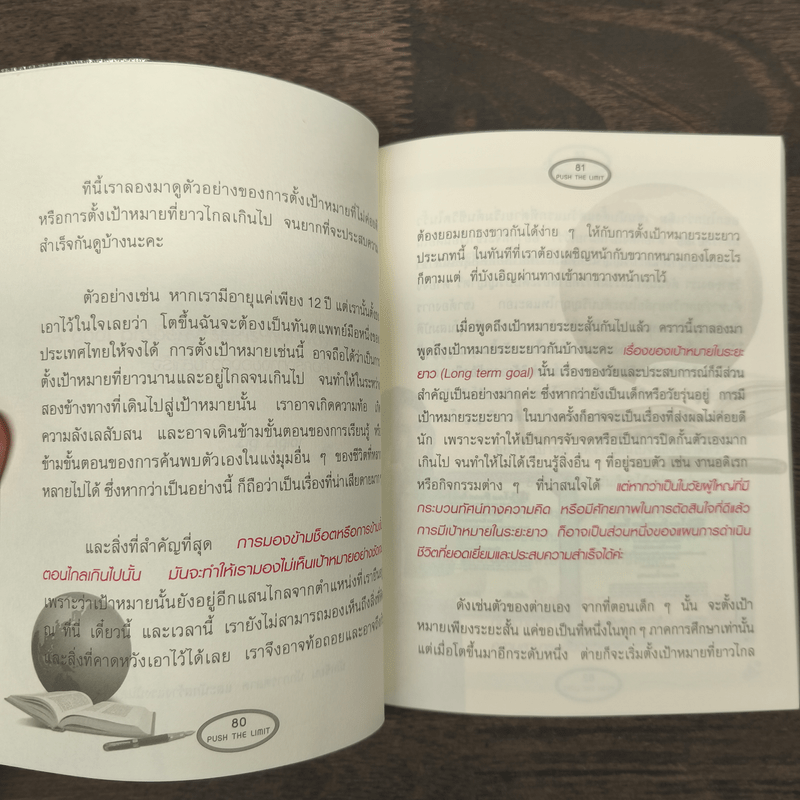 ทีนี้เราลองมาดูตัวอย่างของการตั้งเป้าหมายที่ไม่ค่อยดี
หรือการตั้งเป้าหมายที่ยาวไกลเกินไป จนยากที่จะประสบความ
สำเร็จกันดูบ้างนะคะ
ตัวอย่างเช่น หากเรามีอายุแค่เพียง 12 ปี แต่เรานั้น
เอาไว้ในใจเลยว่า โตขึ้นฉันจะต้องเป็นทันตแพทย์มือหนึ่งของ
ประเทศไทยให้จงได้ การตั้งเป้าหมายเช่นนี้ อาจถือได้ว่าเป็นการ
ตั้งเป้าหมายที่ยาวนานและอยู่ไกลจนเกินไป จนทำให้ในระหว่าง
สองข้างทางที่เดินไปสู่เป้าหมายนั้น เราอาจเกิดความท้อ
ความลังเลสับสน และอาจเดินข้ามขั้นตอนของการเรียนรู้
ข้ามขั้นตอนของการค้นพบตัวเองในแง่มุมอื่น ๆ ของชีวิตที่
หลายไปได้ ซึ่งหากว่าเป็นอย่างนี้ ก็ถือว่าเป็นเรื่องที่น่าเสียดายมาก
และสิ่งที่สำคัญที่สุด การมองข้ามช็อตหรือการข้าม
ตอนไกลเกินไปนั้น มันจะทำให้เรามองไม่เห็นเป้าหมายอย่าง
เพราะว่าเป้าหมายนั้นยังอยู่อีกแสนไกลจากตำแหน่งที่เรา
ณ ที่นี่ เดี๋ยวนี้ และเวลานี้ เรายังไม่สามารถมองเห็นถึงสิ่ง
และสิ่งที่คาดหวังเอาไว้ได้เลย เราจึงอาจท้อถอยและอาจ
80
PUSH THE LIMIT
81
PUSH THE LIMIT
ต้องยอมยกธงขาวกันได้ง่าย ๆ ให้กับการตั้งเป้าหมายระยะยาว
ประเภทนี้ ในทันทีที่เราต้องเผชิญหน้ากับขวากหนามกองโตอะไร
ก็ตามแต่ ที่บังเอิญผ่านทางเข้ามาขวางหน้าเราไว้
เมื่อพูดถึงเป้าหมายระยะสั้นกันไปแล้ว คราวนี้เราลองมา
พูดถึงเป้าหมายระยะยาวกันบ้างนะคะ เรื่องของเป้าหมายในระยะ
ยาว (Long term goal) นั้น เรื่องของวัยและประสบการณ์ก็มีส่วน
สำคัญเป็นอย่างมากค่ะ ซึ่งหากว่ายังเป็นเด็กหรือวัยรุ่นอยู่ การมี
เป้าหมายระยะยาว ในบางครั้งก็อาจจะเป็นเรื่องที่ส่งผลไม่ค่อยดี
นัก เพราะจะทำให้เป็นการจับจดหรือเป็นการปิดกั้นตัวเองมาก
เกินไป จนทำให้ไม่ได้เรียนรู้สิ่งอื่น ๆ ที่อยู่รอบตัว เช่น งานอดิเรก
หรือกิจกรรมต่าง ๆ ที่น่าสนใจได้ แต่หากว่าเป็นในวัยผู้ใหญ่ที่มี
กระบวนทัศน์ทางความคิด หรือมีศักยภาพในการตัดสินใจที่ดีแล้ว
การมีเป้าหมายในระยะยาว ก็อาจเป็นส่วนหนึ่งของแผนการดำเนิน
ชีวิตที่ยอดเยี่ยมและประสบความสำเร็จได้ค่ะ
ดังเช่นตัวของต่ายเอง จากที่ตอนเด็ก ๆ นั้น จะตั้งเป้า
หมายเพียงระยะสั้น แค่ขอเป็นที่หนึ่งในทุก ๆ ภาคการศึกษาเท่านั้น
แต่เมื่อโตขึ้นมาอีกระดับหนึ่ง ต่ายก็จะเริ่มตั้งเป้าหมายที่ยาวไกล